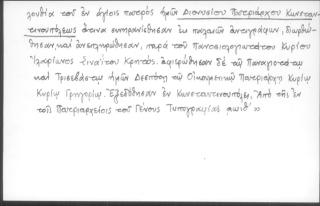 λουθία τοῦ ἐν ἁγίοις πατρὸς ἡμῶν Διονυσίου Πατριάρχου Κωνσταν-
τινουπόλεως ἅτινα ἐκ παλαιῶν ἀντιγράφων, διωρθώ-
θησαν, καὶ παρὰ τοῦ Πανοσιολογιωτάτου Κυρίου
Ἱλαρίωνος Σιναΐτου Κρητός. ἀφιερώθησαν δὲ τῷ Παναγιωτάτῳ
καὶ Τρισεβάστῳ ἡμῶν Δεσπότῃ τῷ Οἰκουμενικῷ Πατριάρχῃ Κυρίῳ
Κυρίῳ Γρηγορίῳ. Ἐξεδόθησαν ἐν Κωνσταντινουπόλει, Ἀπὸ τῆς ἐν
τοῖς Πατριαρχείοις τοῦ Γένους Τυπογραφίας